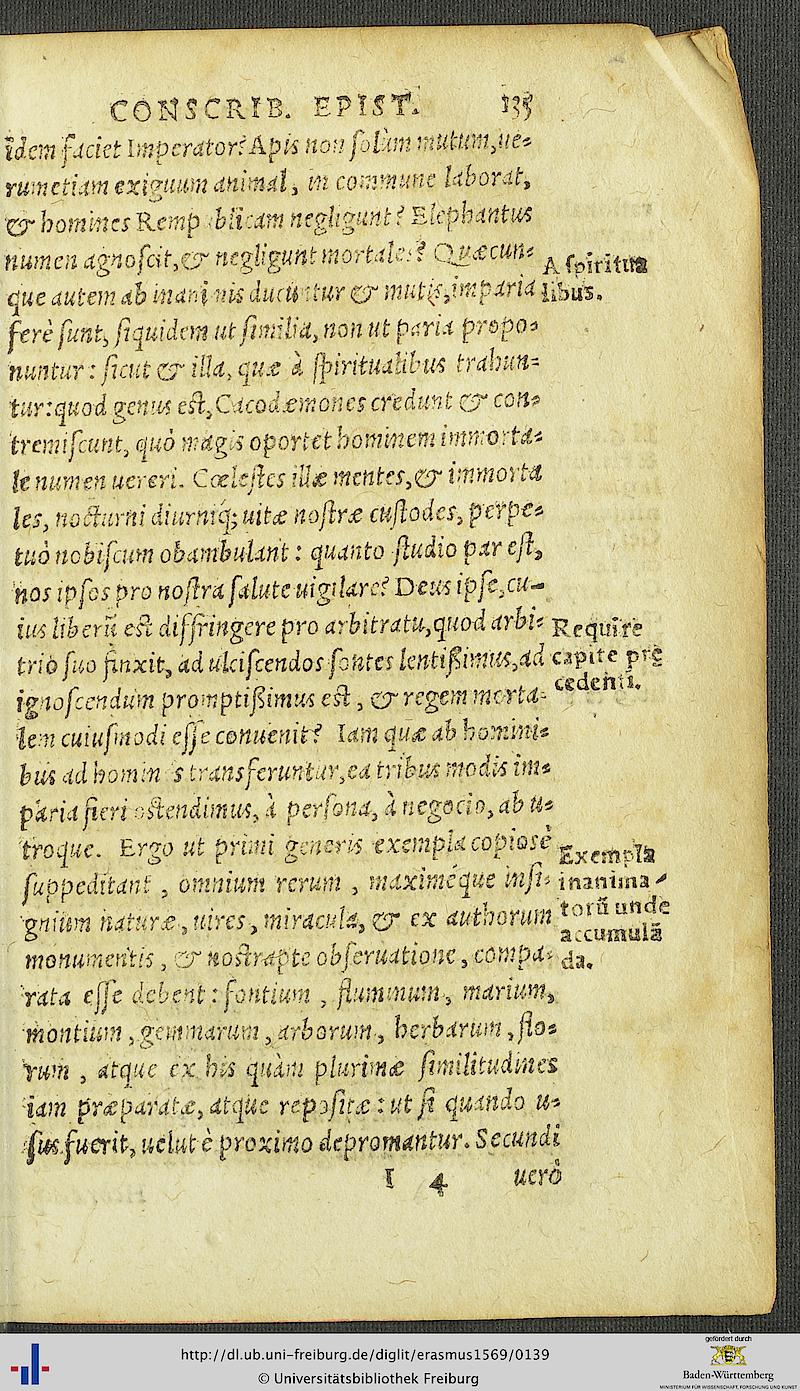 CONSCRIB. EPIST. 135
idem faciet Imperator? Apis non solùm mutum, ue-
rumetiam exiguum animal, in commune laborat,
& homines Remp blicam negligunt? Elephantus
numen agnoscit, & negligunt mortales? Quæcun-
que autem ab inani nis ducũtur & mutis, imparia
ferè sunt, siquidem ut similia, non ut paria propo-
nuntur: sicut & illa, quæ à spiritualibus trahun-
tur: quod genus est, Cacodæmones credunt & con-
tremiscunt, quò magis oportet hominem immorta-
le numen uereri. Cœlestes illæ mentes, & immorta
les, nocturni diurniq́; uitæ nostræ custodes, perpe-
tuò nobiscum obambulant: quanto studio par est,
nos ipsos pro nostra salute uigilare? Deus ipse, cu-
ius liberũ est diffringere pro arbitratu, quod arbi-
trio suo finxit, ad ulciscendos sontes lentißimus, ad
ignoscendum promptißimus est, & regem morta-
lem cuiusmodi esse conuenit? Iam quæ ab homini-
bus ad homin s transferuntur, ea tribus modis im-
paria fieri ostendimus, à persona, à negocio, ab u-
troque. Ergo ut primi generis exempla copiosè
suppeditant, omnium rerum, maximéque insi-
gnium naturæ, uires, miracula, & ex authorum
monumentis, & nostrapte obseruatione, compa-
rata esse debent: fontium, fluminum, marium,
montium, gemmarum, arborum, herbarum, flo-
rum, atque ex his quàm plurimæ similitudines
iam præparatæ, atque repositæ: ut si quando u-
sus fuerit, uelut è proximo depromantur. Secundi
I 4 uerò
A spiritua
libus.
Require
capite prę
cedenti.
Exempla
inanima-
torũ unde
accumulã
da.
http://dl.ub.uni-freiburg.de/diglit/erasmus1569/0139
© Universitätsbibliothek Freiburg
gefördert durch
Baden-Württemberg
MINISTERIUM FÜR WISSENSCHAFT, FORSCHUNG UND KUNST